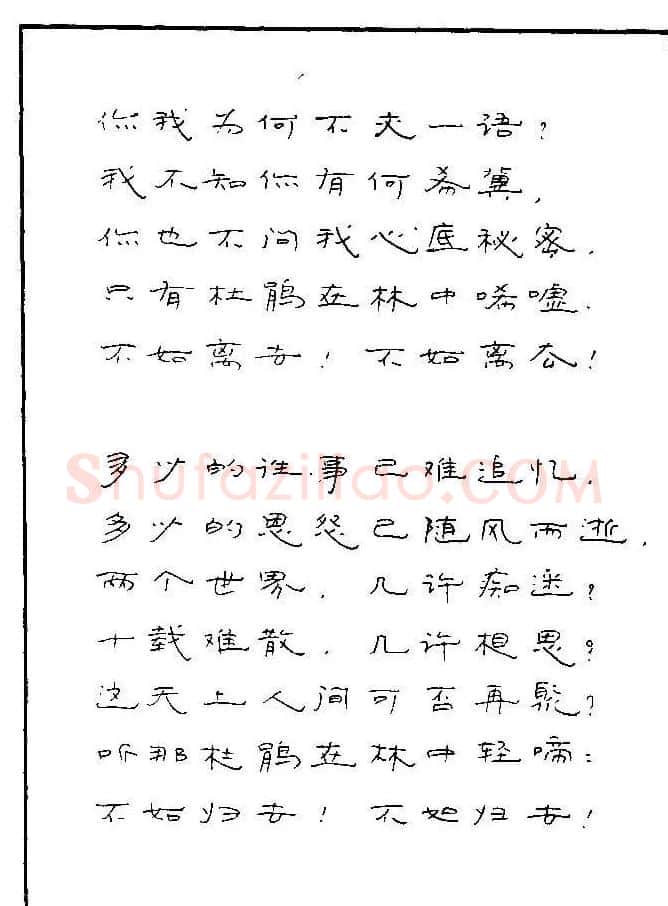 你我为何不交一语?
我不知你有何希冀,
你也不问我心底秘密.
只有杜鹃在林中唏嘘.
不如离去! 不如离去!
多少的往事已难追忆.
Shufaziliao.COM
多少的恩怨已随风而逝,
两个世界. 几许痴迷?
十载难散. 几许相思?
这天上人间可否再聚?
听那杜鹃在林中轻啼:
不如归去! 不如归去!